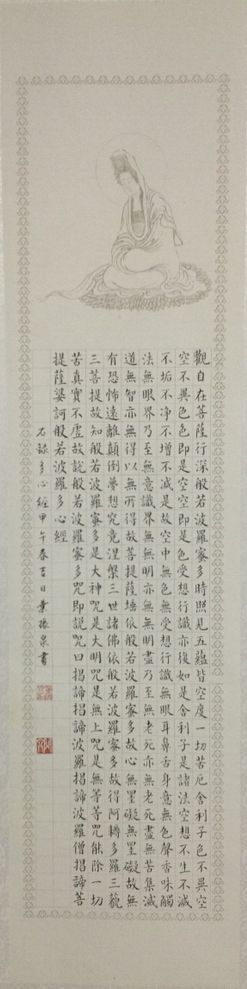 觀自在菩薩行深般若波羅蜜多時照見五蘊皆空度一切苦厄舍利子色不異空
空不異色色即是空空即是色受想行識亦復如是舍利子是諸法空想不生不滅
不垢不净不增不減是故空中無色無受想行識無眼耳鼻舌身意無色聲香味觸
法無眼界乃至無意識界無無明亦無無明盡乃至無老死亦無老死盡無苦集滅
道無智亦無得以無所得故菩提薩埵依般若波羅蜜多故心無罣礙無罣礙故無
有恐怖遠離顛倒夢想究竟涅槃三世諸佛依般若波羅蜜多故得阿耨多羅三藐
三菩提故知般若波羅蜜多是大神咒是大明咒是無上咒是無等等咒能除一切
苦真實不虛故說般若波羅蜜多咒即說咒曰揭諦揭諦波羅揭諦波羅僧揭諦菩
提薩婆訶般若波羅多心經
右録多心經甲午春吉日葉振泉書